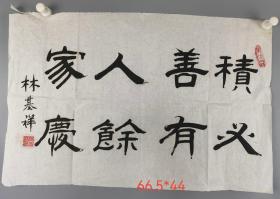 積必
善有
人餘
家慶
林基祥
66.5*44